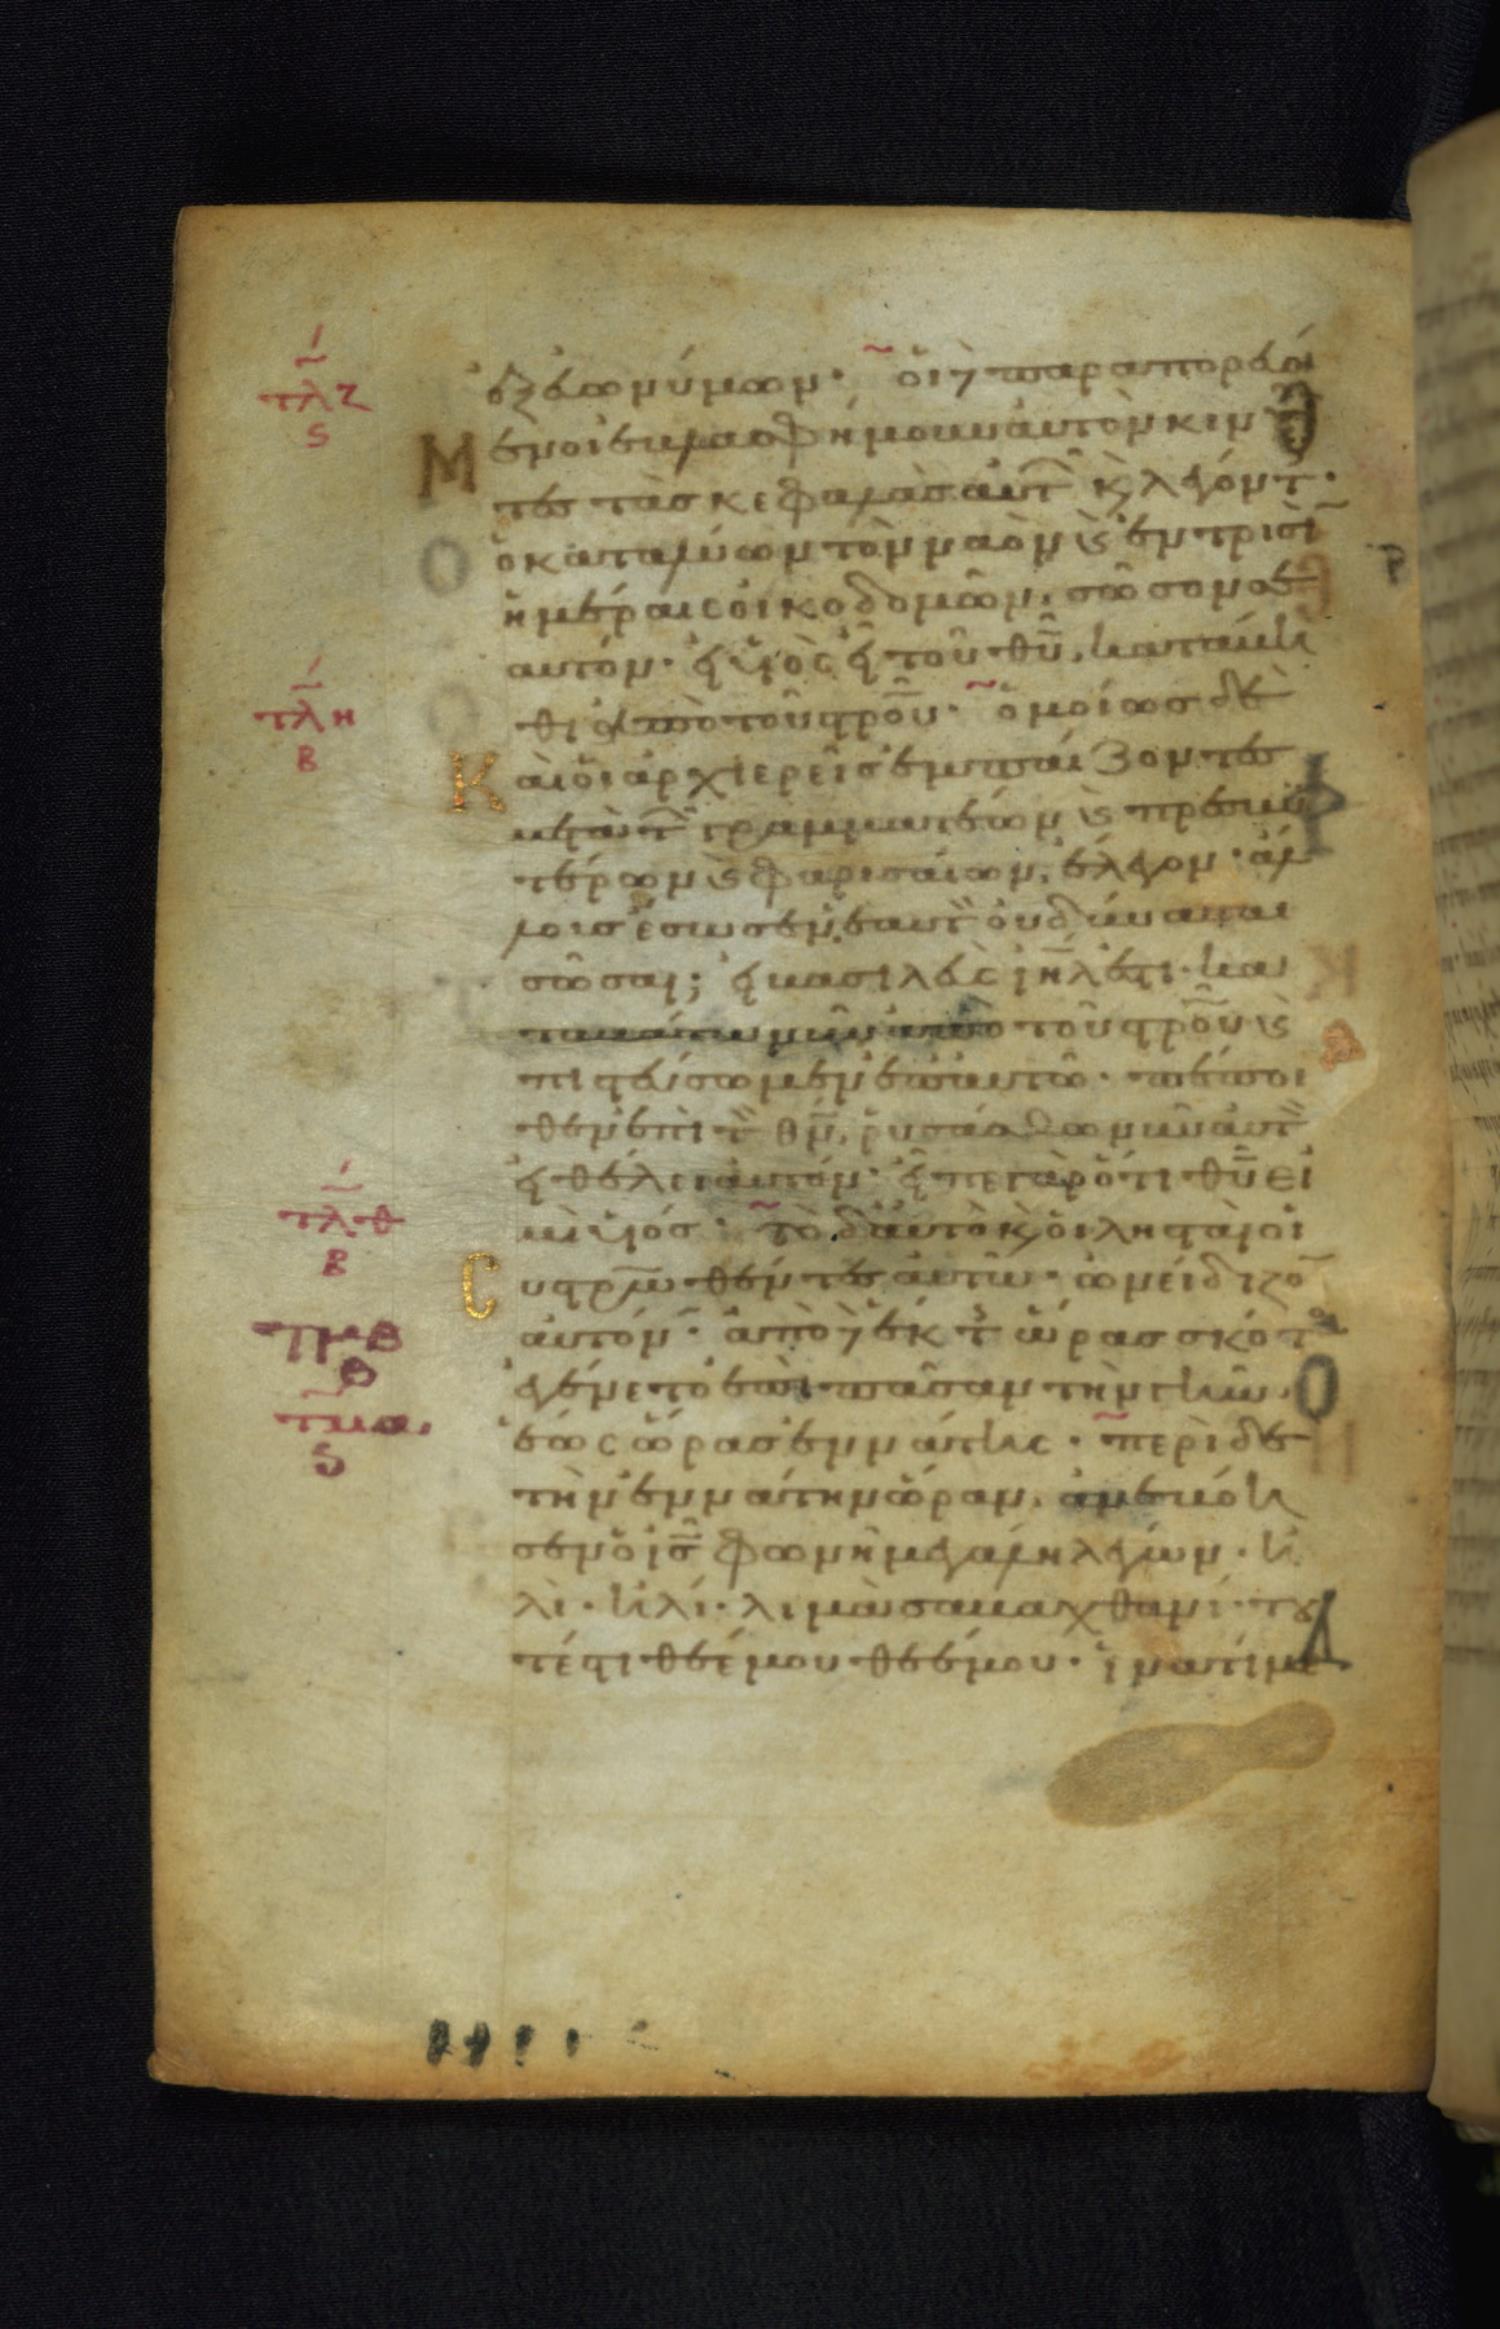 τλζ
ϛ
ἐξ εὐωνύμων· οἱ δὲ παραπορευό
Μ ενοι ἐβλασφήμουν αὐτὸν κιν
τες τὰς κεφαλὰς αὐτ κ λέγοντ·
Ο ὁ καταλύων τὸν ναὸν κ ἐν τρισὶ
ἡμέραις οἰκοδομῶν, σῶσον σε
αυτόν· εἰ υἱὸς εἶ τοῦ θυ, κατάβη
τλη
Β
θι ἀπὸ τοῦ στρου· ὁμοίως δὲ
Κ αὶ οἱ ἀρχιερεῖς ἐμπαίζοντες
μετὰ τ γραμματέων κ πρεσβυ
τέρων κ φαρισαίων, ἔλεγον· ἄλ
λους ἔσωσεν, ἑαυτ οὐ δύναται
σῶσαι; εἰ βασιλεὺς ιηλ ἐστι· κα
ταβάτω νῦν ἀπὸ τοῦ στρου κ
πιστεύσωμεν ἐπ αὐτῶ· πέποι
θεν ἐπὶ τ θν, ῥυσάσθω νῦν αὐτ
εἰ θέλει αὐτόν· εἶπε γὰρ ὅτι θυ εἰ
τλθ
Β
μὶ υἱός· τὸ δ αὐτὸ κ οἱ λησταὶ οἱ
C υστρωθέντες αὐτῶ· ὠνείδιζο
τμΒ
Β
αὐτόν· ἀπὸ δὲ ἕκτ ὥρας σκότ
ἐγένετο ἐπὶ πᾶσαν τὴν γῆν·
τμα
ϛ
ἕως ὥρας ἐννάτης· περὶ δὲ
τὴν ἐννάτην ὥραν, ἀνεβόη
σεν ὁ ις φωνῆ μεγάλη λέγων· ἠ
λὶ· ἠλί· λιμὰ σαβαχθανί· του
τέστι θεέ μου θεέ μου· ἱνατί με